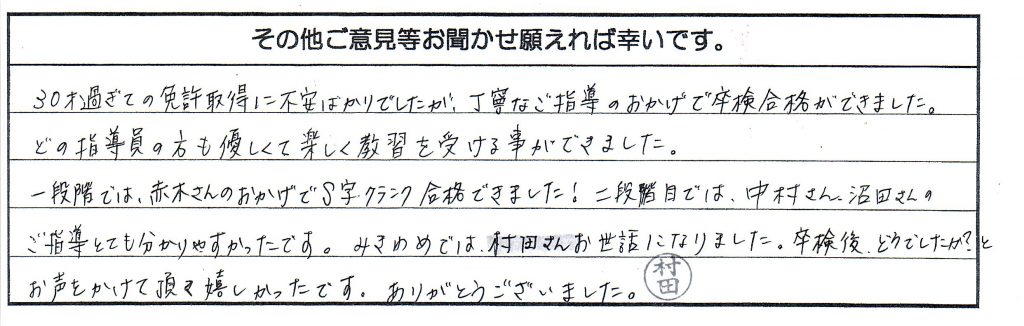 その他ご意見等お聞かせ願えれば幸いです。
30才過ぎての免許取得に不安ばかりでしたが、丁寧なご指導のおかげで卒検合格ができました。
どの指導員の方も優しくて楽しく教習を受ける事ができました。
一段階では、赤木さんのおかげでS字.クランク合格できました!二段階目では、中村さん、沼田さんの
ご指導とても分かりやすかったです。みきわめでは、村田さんお世話になりました。卒検後、どうでしたか?と
お声をかけて頂き嬉しかったです。ありがとうございました。
村田